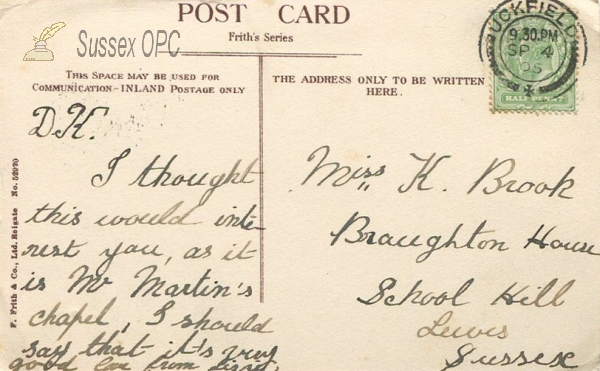 POST CARD
Frith's Series
Sussex OPC
THIS SPACE MAY BE USED FOR
COMMUNICATION-INLAND POSTAGE ONLY
THE ADDRESS ONLY TO BE WRITTEN
HERE.
UCKFIELD
9.30.PM
SP 4
05
HALF PENNY
F. Frith & Co., Ltd. Reigate No. 52920
D.K.
I thought
this would inte
rest you, as it
is Mr Martin's
chapel, I should
say that it's very
good love from
Miss K. Brook
Braughton House
School Hill
Lewes
Sussex